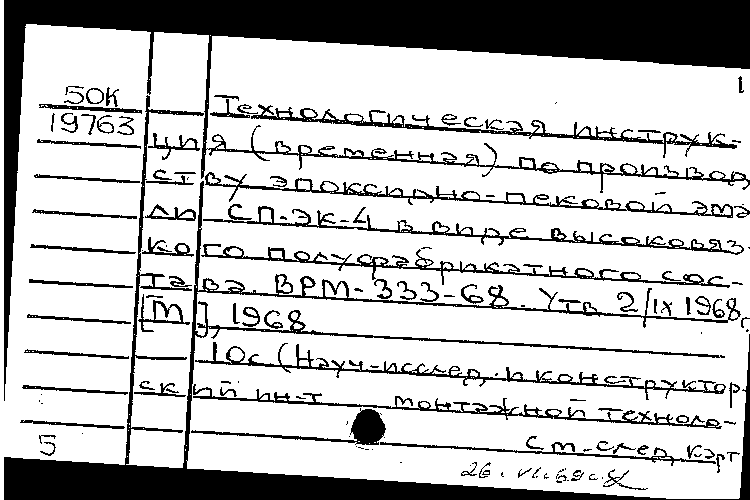 1
50К
19763
Технологическая инструк-
ция (временная) по производ
ству эпоксидно-пековой эма
ли СП-ЭК-4 в виде высоковяз-
кого полуфабрикатного сос-
тава. ВРМ-333-68. Утв 2/IX 1968,
[М], 1968.
10с (Науч-исслед, и конструктор-
ский ин-т монтажной техноло-
См. след, карт
5
26. VI. 69г.